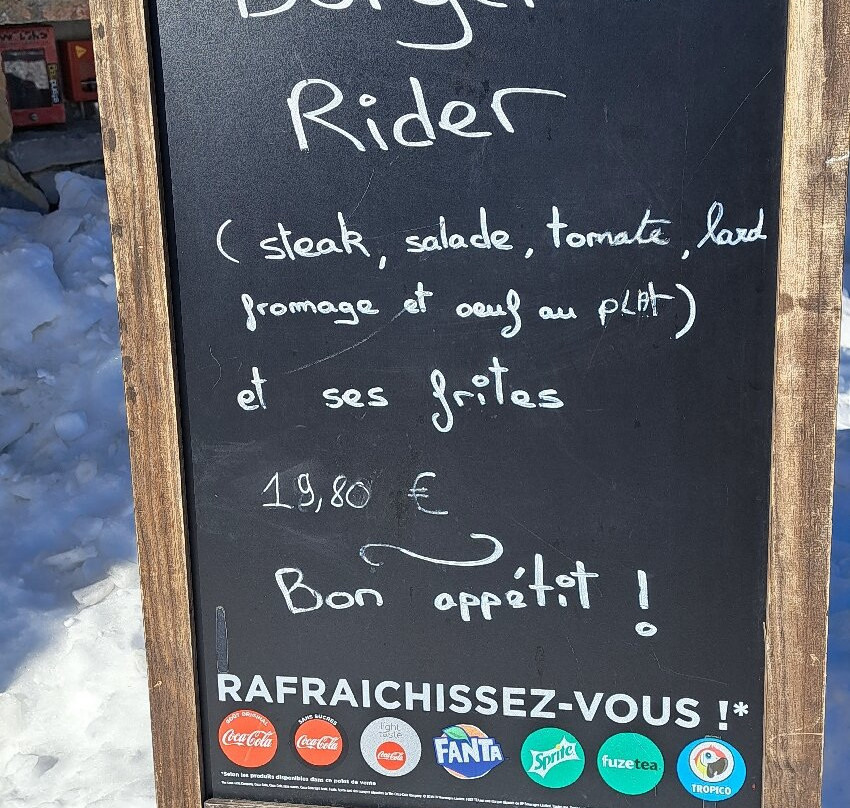 Burger
Rider
( steak, salade, tomate, lard
fromage et oeuf au PLAt)
et ses frites
19,80 €
Bon appétit !
RAFRAICHISSEZ-VOUS !*
GOÛT ORIGINAL
Coca-Cola
SANS SUCRES
Coca-Cola
light
taste
Coca-Cola
FANTA
Sprite
fuzetea
TROPICO
*Selon les produits disponibles dans ce point de vente